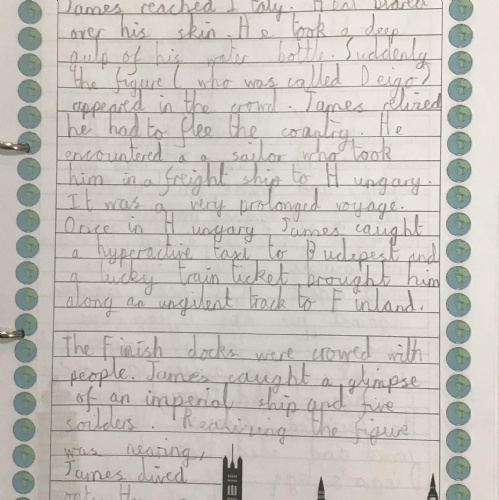 James reached Italy. Heat blared
over his skin. He took a deep
gulp of his water bottle. Suddenly
the figure (who was called Deigo)
appeared in the crowd. James relized
he had to flee the country. He
encountered a a sailor who took
him in a freight ship to Hungary.
It was a very prolonged voyage.
Once in Hungary James caught
a hyperactive taxi to Budepest and
a lucky train ticket brought him
along an ungulent track to Finland.
The Finish docks were crowed with
people. James caught a glimpse
of an imperial ship and five
soilders. Realizing the figure
was nearing,
James dived